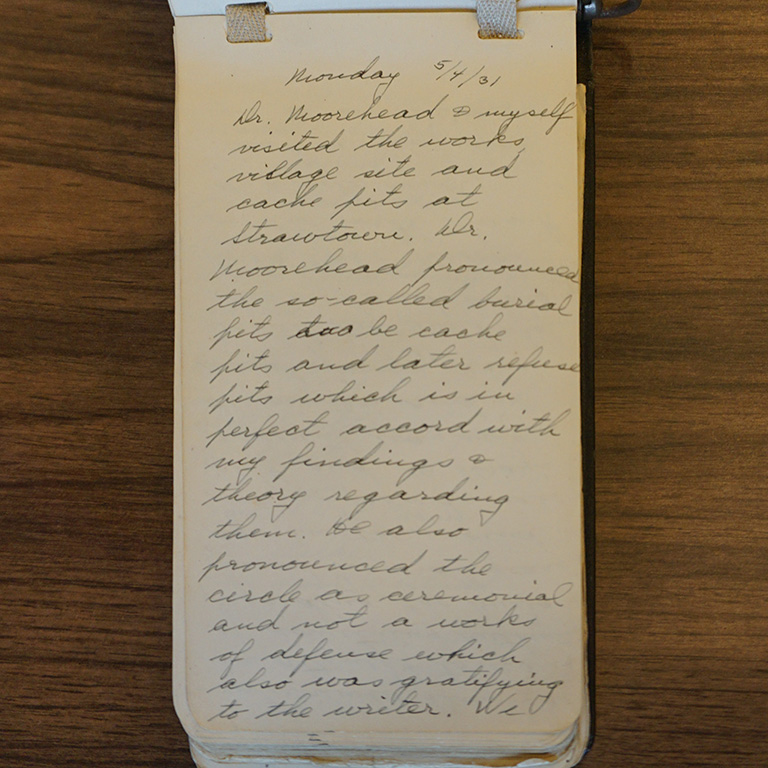 Monday 5/4/31
Dr. Moorehead & myself
visited the works,
village site and
cache pits at
Strawtown. Dr.
Moorehead pronounced
the so-called burial
pits too be cache
pits and later refuse
pits which is in
perfect accord with
my findings &
theory regarding
them. He also
pronounced the
circle as ceremonial
and not a works
of defense which
also was gratifying
to the writer. We